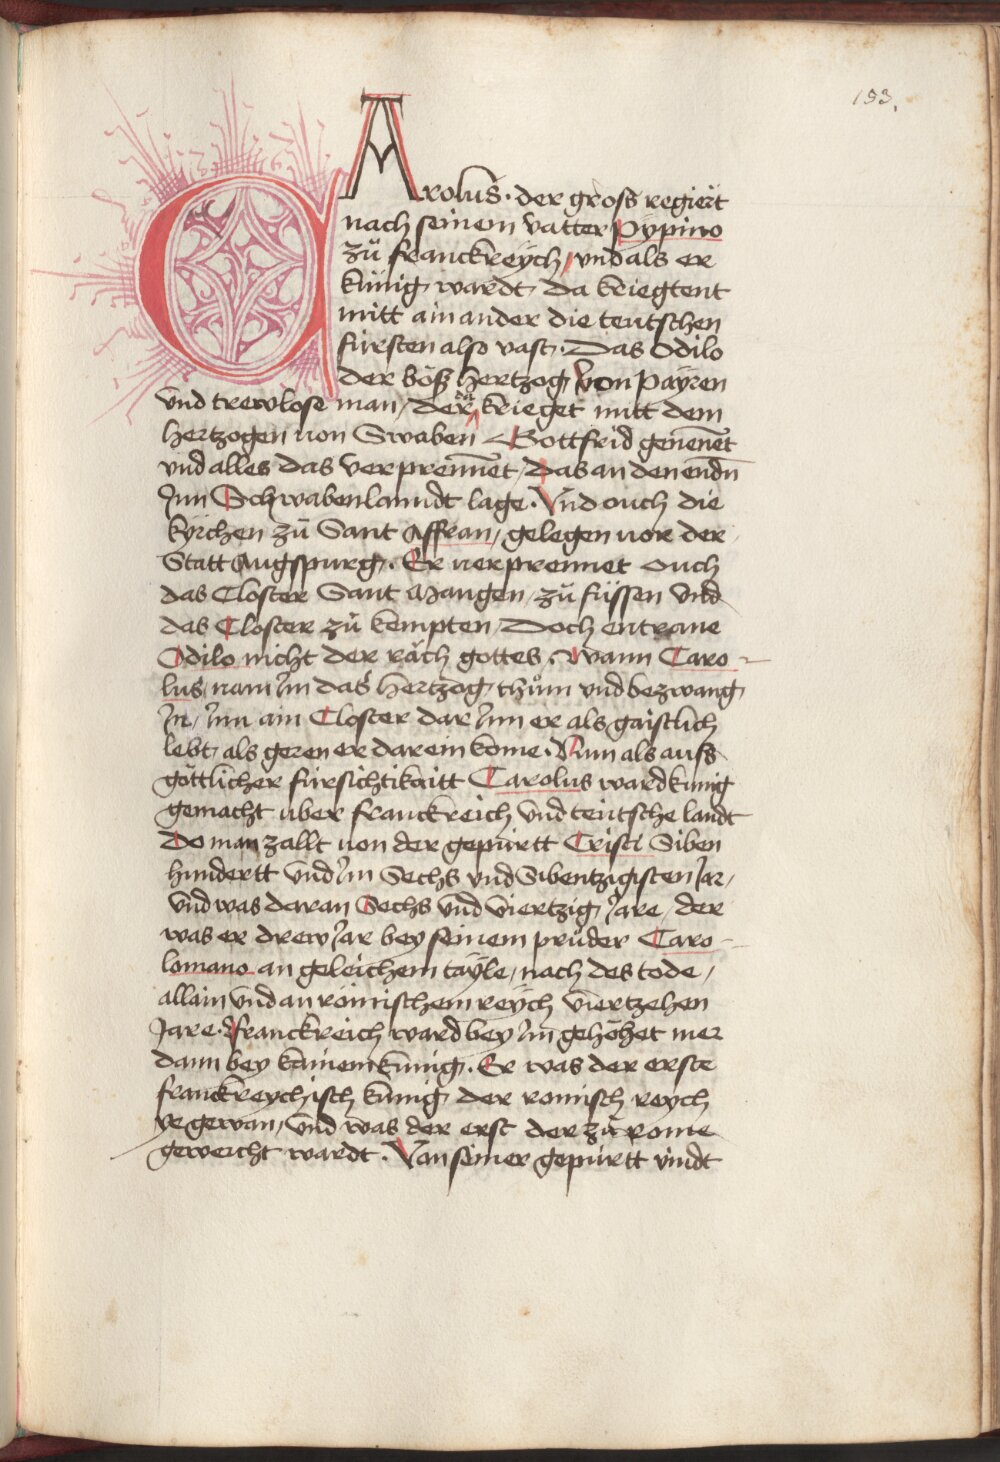 153.
CArolus · der gross regiert
nach seinem vatter Pypino
zů franckreÿch / und als er
künig wardt da kriegtent
mitt ainander die teutschen
fürsten also vast · Das Odilo
der böß hertzog von Paÿren
vnd trewlose man / der krieget mitt dem
hertzogen von Swaben Gottfrid genennet
vnd alles das verprennet / das an den endn
Jnn Schwabenlanndt lage · Vnd ouch die
kÿrchen zů Sant Affran / gelegen vor der
Statt Augspurg · Er verprennet ouch
das Closter Sant Mangen / zů füssen vnd
das Closter zů kempten / Doch entrane
Odilo nicht der räch gottes · Wann Caro-
lus / nam Jm das hertzog thům vnd bezwang
Jn / Jnn ain Closter dar Jnn er als gaistlich
lebt als geren er darein kome · Nun als auss
göttlicher fürsichtikaitt Carolus ward kunig
gemacht uber franckreich vnd teutsche landt
Do man zallt von der gepurtt Cristi Siben
hundertt vnd Jm Sechs vnd Sibentzigisten Jar /
vnd was daran Sechs vnd viertzig Jare / der
was er drew Jar bey seinem průder Caro-
lomano an geleichem taÿle / nach des tode /
allain vnd an römischem reÿch viertzehen
Jare · franckreich ward bey Jm gehöhet mer
dann bey kainem kunig · Er was der erste
franckreychisch kunig der romisch reych
ye gewan / vnd was der erst der zů rome
geweicht wardt · Von seiner gepurtt vindt